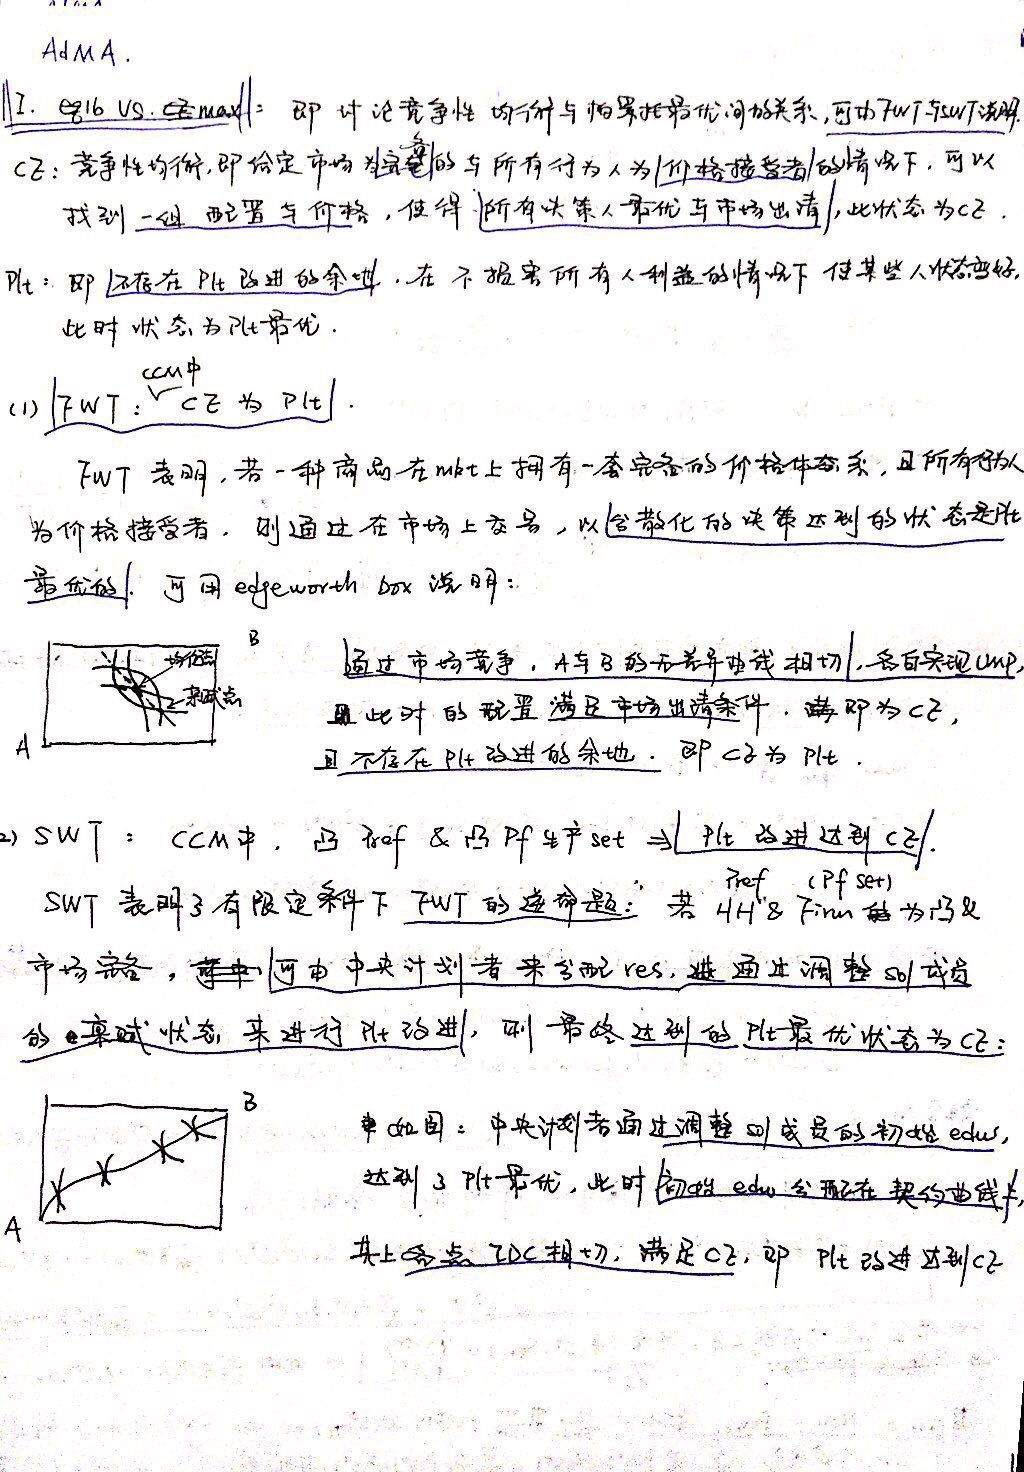 AdMA.
I. eqlb VS. max: 即讨论竞争性均衡与帕累托最优间的关系,可由FWT与SWT说明.
CE: 竞争性均衡,即给定市场为完备的与所有行为人为价格接受者的情况下,可以
找到一组配置与价格,使得所有决策人最优与市场出清,此状态为CE.
Plt: 即不存在Plt改进的余地,在不损害所有人利益的情况下使某些人状态变好,
此时状态为Plt最优.
CCM中
(1) FWT: CE为Plt.
FWT表明,若一种商品在mkt上拥有一套完备的价格体系,且所有行为人
为价格接受者,则通过在市场上交易,以分散化的决策达到的状态是Plt
最优的. 可用edgeworth box说明:
B
均衡点
禀赋点
A
通过市场竞争,A与B的无差异曲线相切,各自实现UMP,
且此时的配置满足市场出清条件,即为CE,
且不存在Plt改进的余地. 即CE为Plt.
2) SWT: CCM中,凸Pref & 凸Pf生产set ⇒ Plt改进达到CE.
Pref (Pf set)
SWT表明了有限定条件下FWT的逆命题: 若HH & Firm为凸&
市场完备,可由中央计划者来分配res,通过调整sol成员
的禀赋状态来进行Plt改进,则最终达到的Plt最优状态为CE:
B
A
如图: 中央计划者通过调整sol成员的初始edws,
达到了Plt最优,此时初始edw分配在契约曲线上,
其上各点IDC相切,满足CE,即Plt改进达到CE